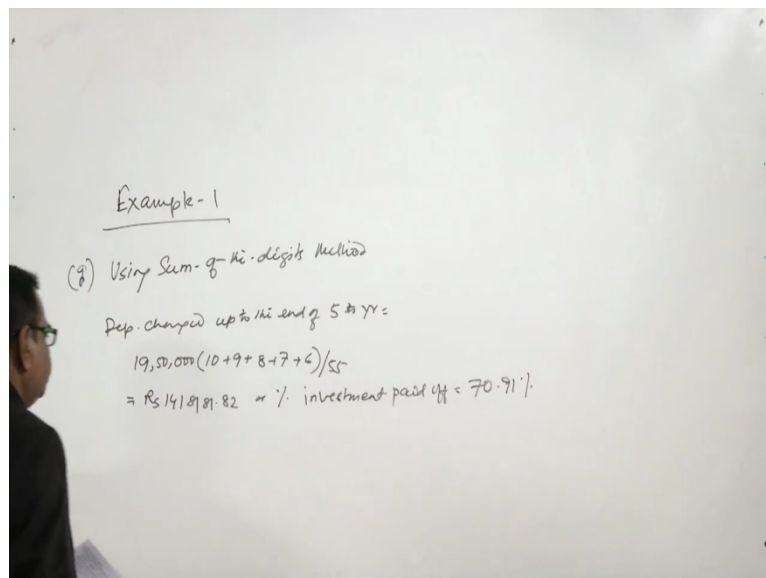 Example-1
(g) Using Sum-of-the-digits Method
Dep. charged up to the end of 5th yr =
19,50,000 (10+9+8+7+6)/55
= Rs 1418181.82 or % investment paid off = 70.91%.